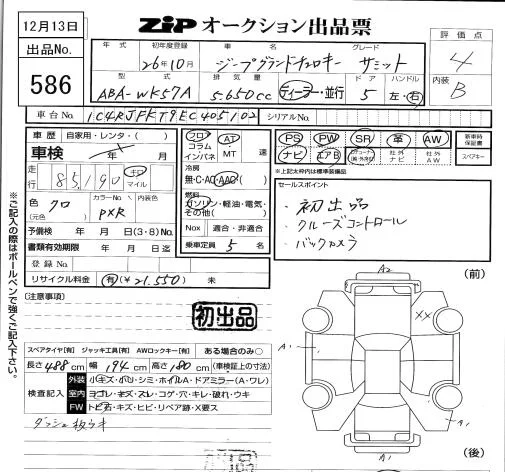 12月13日
ZiP オークション出品票
出品No.
586
年式
初年度登録
26年10月
車名
ジープグランドチェロキー
グレード
サミット
評価点
4
内装
B
型式
ABA-WK57A
排気
5,650cc
ディーラー・並行
ドア
5
ハンドル
左・右
車台No.
1C4RJFKT9EC405102
シリアルNo.
車歴 自家用・レンタ・( )
車検 年 月
走行 85,190 キロ マイル
色(元色) クロ
カラーNo. PXR
内装色
予備検 年 月 日(3・8)No.
書類有効期限 年 月 日迄
登録No.
リサイクル料金 有(¥21,550) 未
フロア
コラム
インパネ
AT
・
MT
速
冷房
無・C・AC・AAC
燃料
ガソリン・軽油・電気・
その他( )
Nox 適合・非適合
乗車定員 5 名
PS PW SR 革 AW
ナビ エアB
社外ナビ
社外AW
新車時保証書
スペアキー
※上記太枠内は標準装備品です
セールスポイント
・初出品
・クルーズコントロール
・バックカメラ
(注意事項)
初出品
スペアタイヤ[有] ジャッキ工具[有] AWロックキー[有] ある場合のみ○
長さ 488 cm 幅 194 cm 高さ 180 cm (車検証上の寸法)
検査記入
外装 小キズ・ボリ・シミ・ホイルA・ドアミラー(A・ワレ)
室内 ヨゴレ・キズ・スレ・コゲ・穴・キレ・破れ・ウキ
FW トビ石・キズ・ヒビ・リペア跡・X要ス
ダッシュ板ウキ
(前)
A2
XX
A1
A1
A1
(後)
※ご記入の際はボールペンで強くご記入下さい。